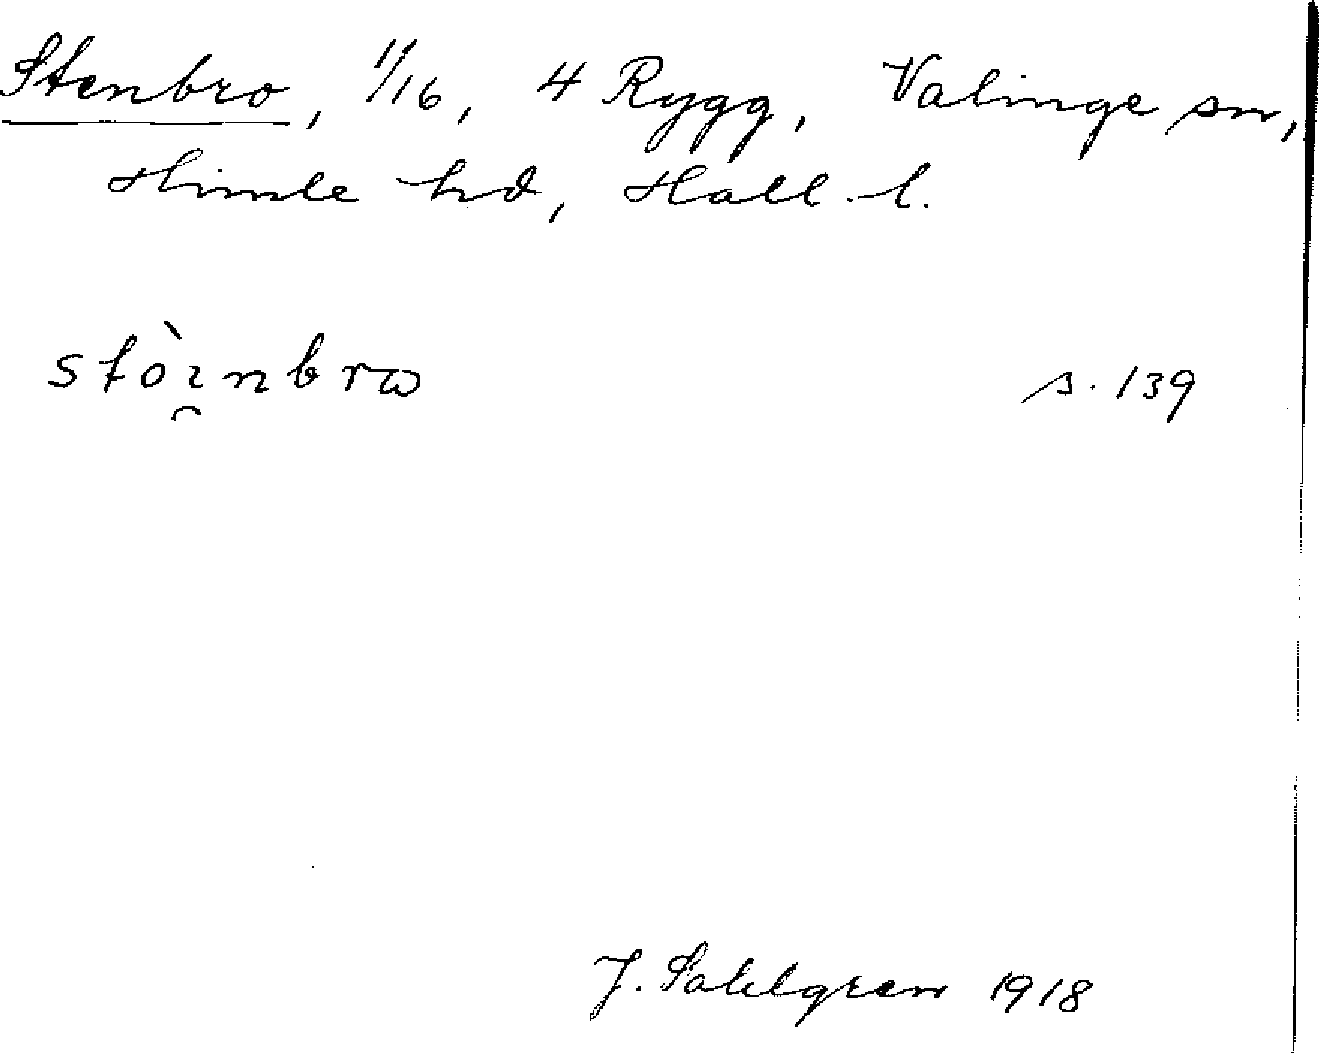 Stenbro, 11/16, 4 Rygg, Valinge sn,
Himle hd, Hall. l.
s. 139
J. Sahlgren 1918